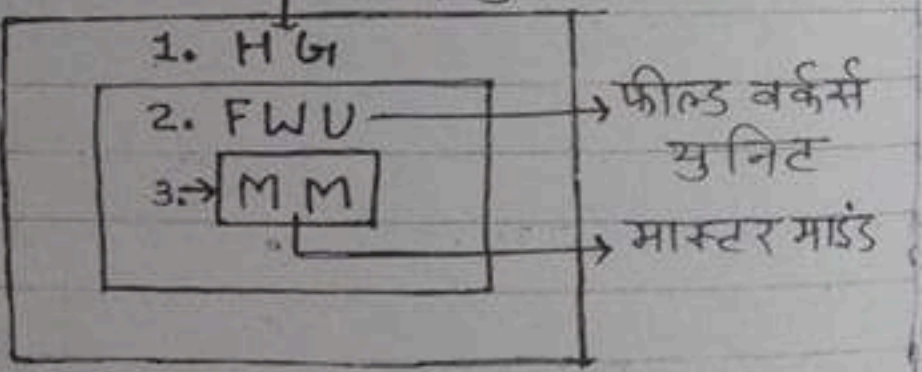 1. HG
2. FWU → फील्ड वर्कर्स
युनिट
3.→ MM → मास्टर माइंड